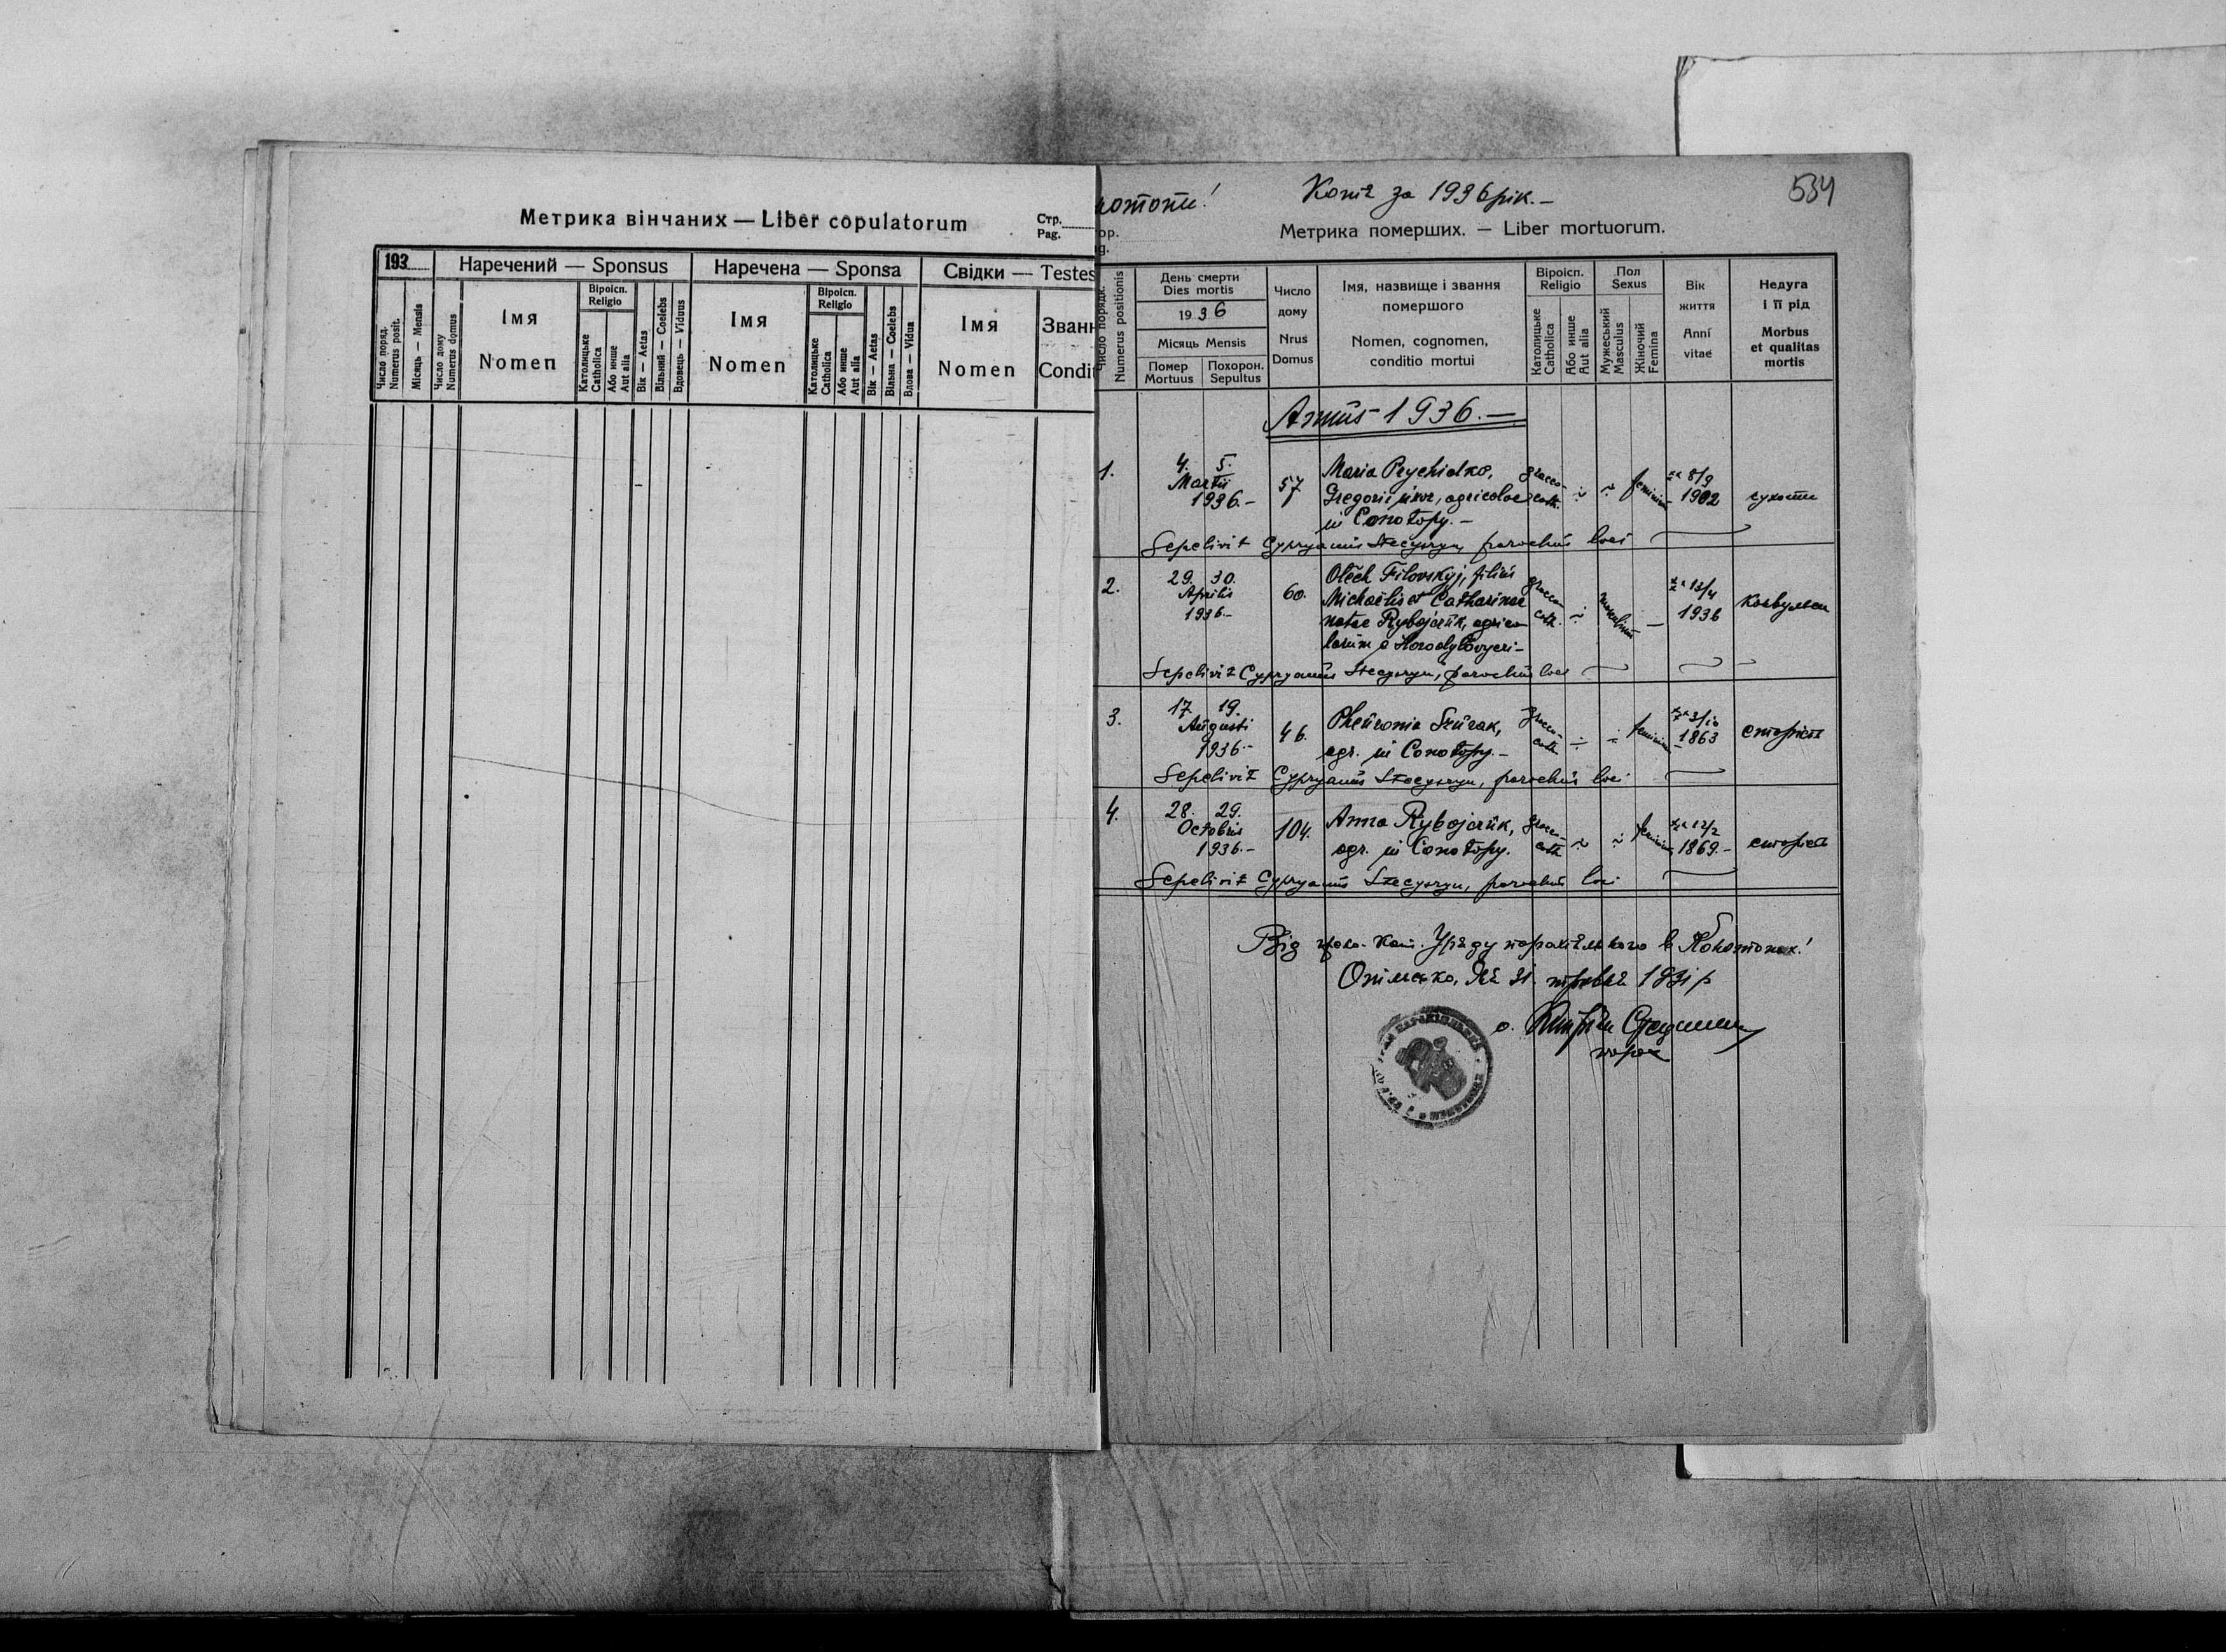 Метрика вінчаних — Liber copulatorum
Стр.
Pag.
193
Наречений — Sponsus
Наречена — Sponsa
Свідки — Testes
Число поряд.
Numerus posit.
Місяць — Mensis
Число дому
Numerus domus
Імя
Nomen
Віроісп.
Religio
Католицьке
Catholica
Або инше
Aut alia
Вік — Aetas
Вільний — Coelebs
Вдовець — Viduus
Імя
Nomen
Віроісп.
Religio
Католицьке
Catholica
Або инше
Aut alia
Вік — Aetas
Вільна — Coelebs
Вдова — Vidua
Імя
Nomen
Званн
Condit
Копія за 1936 рік.—
534
Метрика померших. — Liber mortuorum.
Число порядк.
Numerus positionis
День смерти
Dies mortis
1936
Місяць Mensis
Помер
Mortuus
Похорон.
Sepultus
Число
дому
Nrus
Domus
Імя, назвище і звання
помершого
Nomen, cognomen,
conditio mortui
Віроісп.
Religio
Католицьке
Catholica
Або инше
Aut alia
Пол
Sexus
Мужеський
Masculus
Жіночий
Femina
Вік
життя
Anni
vitae
Недуга
і її рід
Morbus
et qualitas
mortis
Annus 1936.—
1. 4. 5. Martii 1936.— 57
Maria Prychidko,
Gregorii uxor, agricolae
in Conotopy.—
graeco-cath. feminin 8/9 1902 сухоти
Sepelivit Cypryanus Stecyszyn, parochus loci
2. 29. 30. Aprilis 1936.— 60.
Olech Filovskyj, filius
Michaelis et Catharinae
natae Rybojczuk, agrico
larum e Horodylovyci—
graeco-cath. masculinum — 12/4 1936 конвульсии
Sepelivit Cypryanus Stecyszyn, parochus loci
3. 17. 19. Augusti 1936.— 46.
Szurak,
agr. in Conotopy.—
graeco-cath. feminin 3/10 1863 старість
Sepelivit Cypryanus Stecyszyn, parochus loci
4. 28. 29. Octobris 1936.— 104.
Anna Rybojczuk,
agr. in Conotopy.
graeco-cath. feminin 12/2 1869.— старість
Sepelivit Cypryanus Stecyszyn, parochus loci
Від греко-кат. Уряду парохіяльного в Конотопах!
о. Кипріян Стецишин
парох